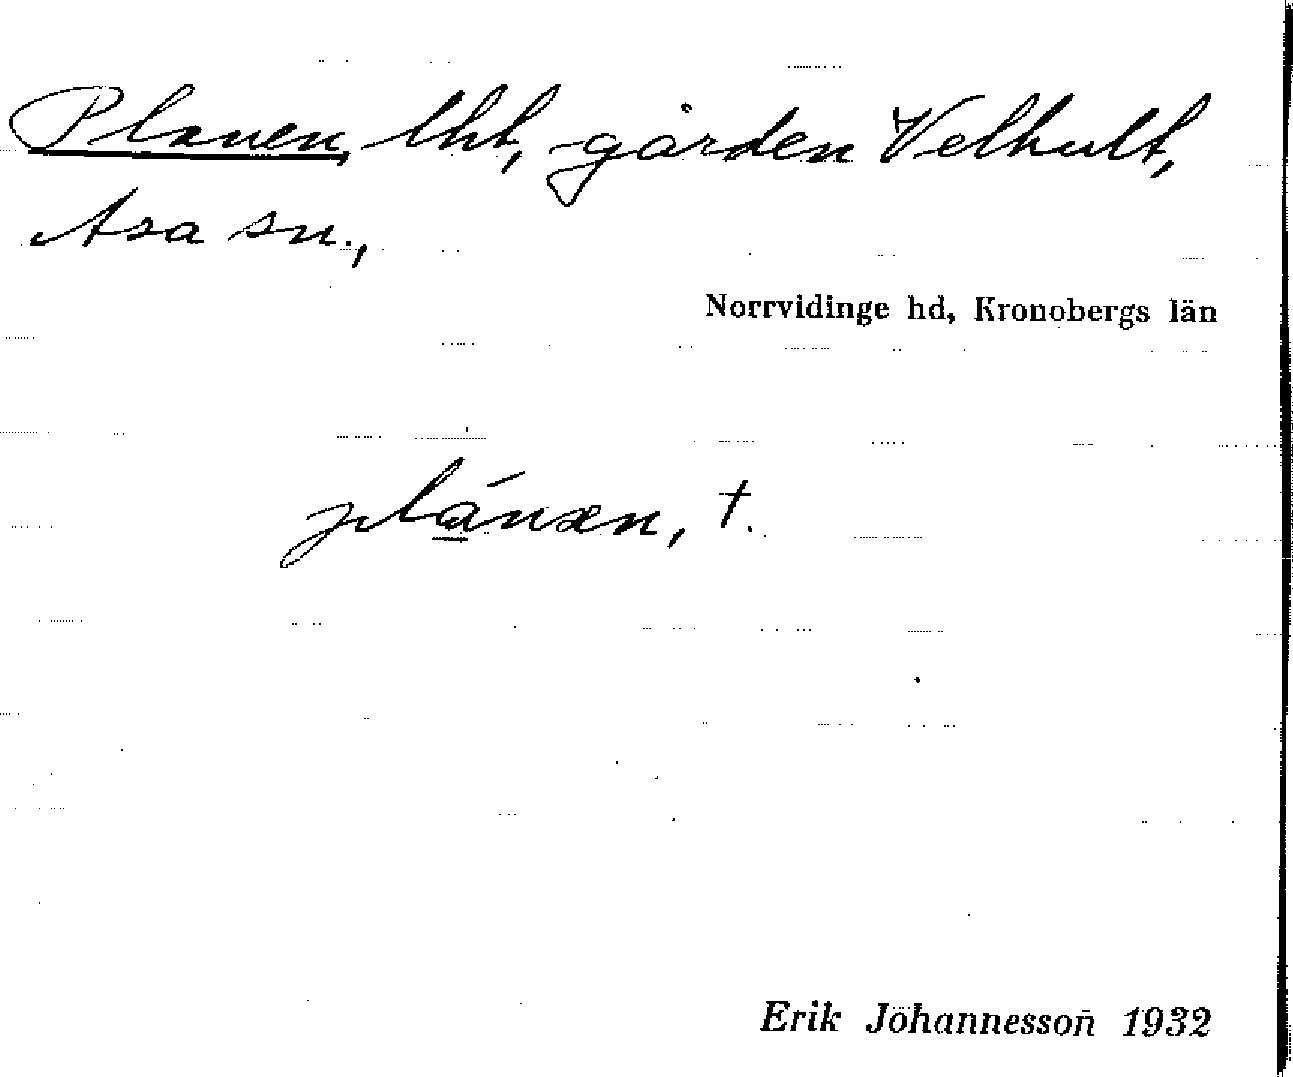 Planen, lht, gården Velhult,
Asa sn.,
Norrvidinge hd, Kronobergs län
plánæn, †.
Erik Johannesson 1932